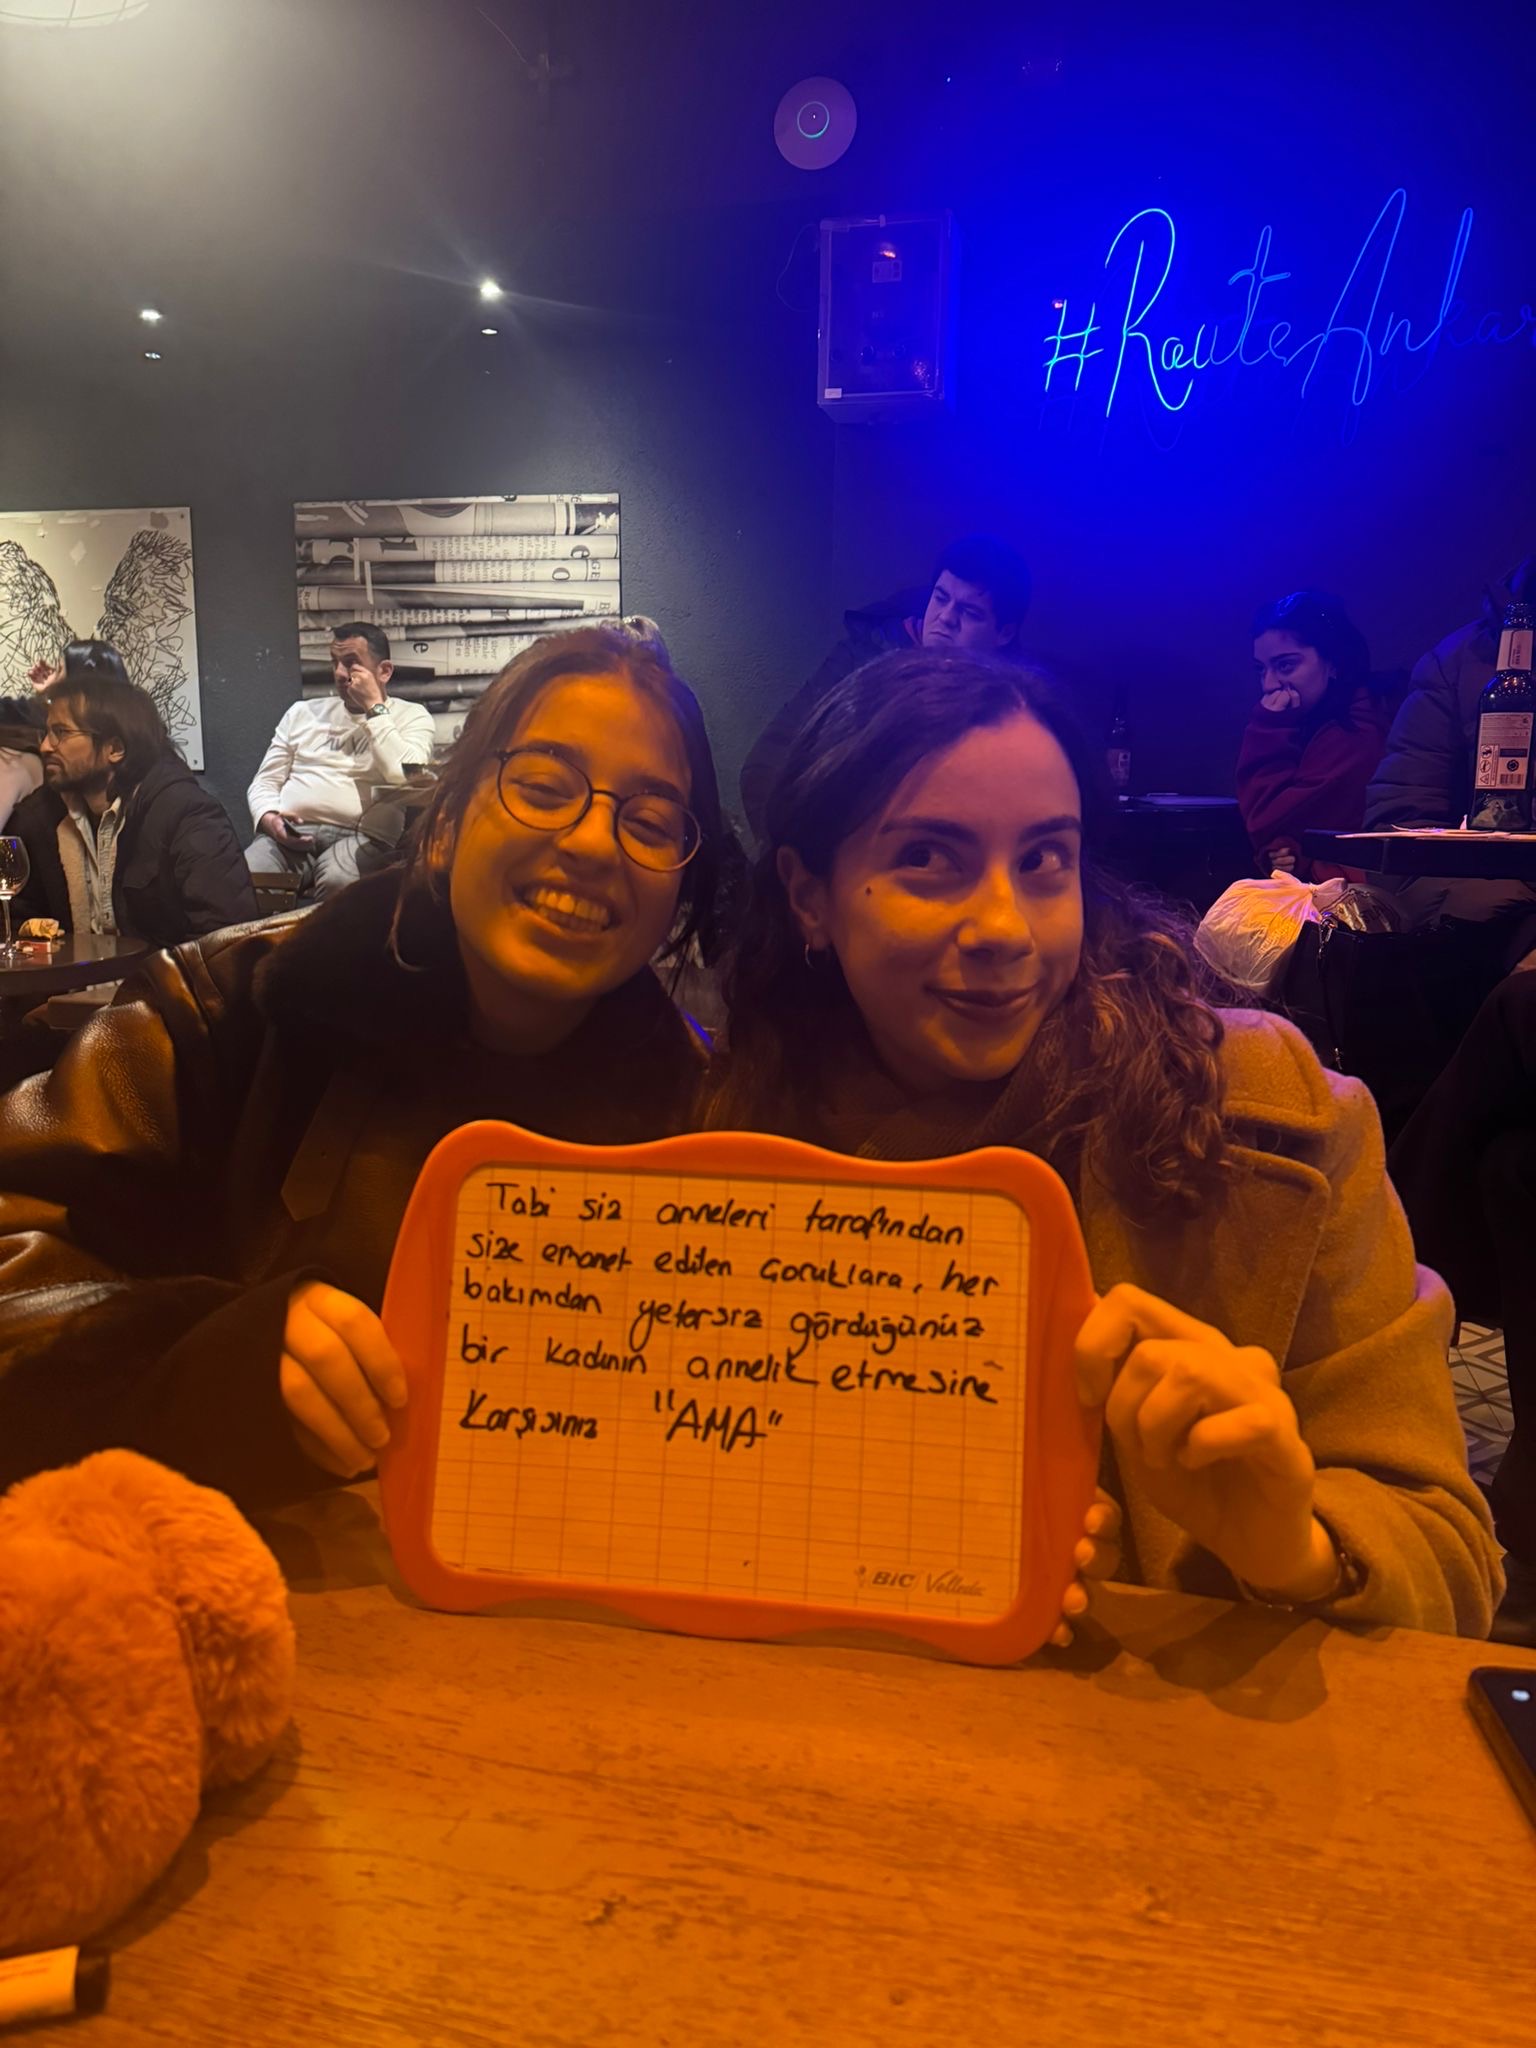 #RouteAnka
Tabi siz anneleri tarafından
size emanet edilen çocuklara, her
bakımdan yetersiz gördüğünüz
bir kadının annelik etmesine
karşısınız "AMA"
BIC Velleda